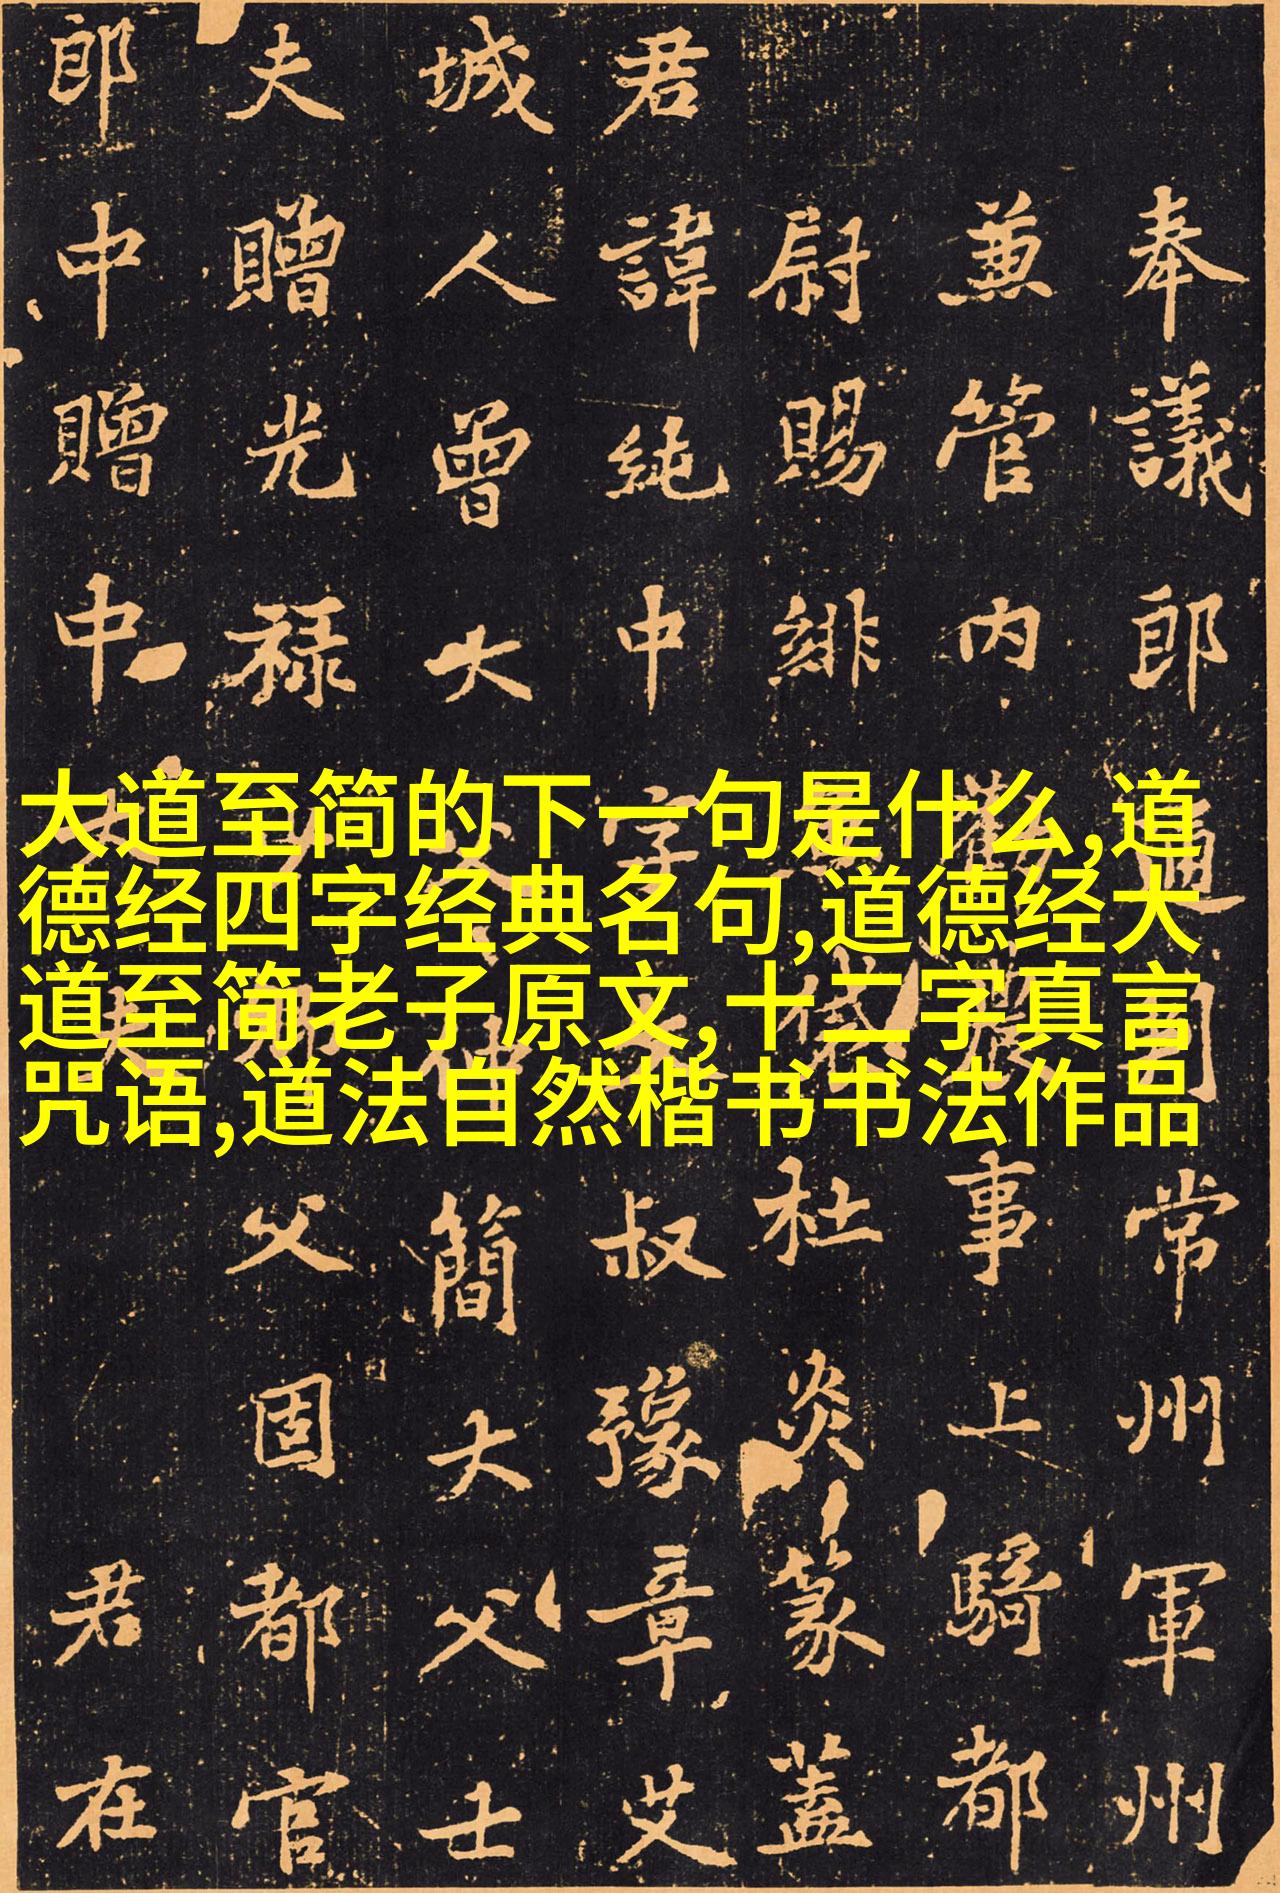 大道至简的下一句是什么,道
德经四字经典名句,道德经大
道至简老子原文,十二字真言
咒语,道法自然楷书书法作品
奉議郎通常州軍州
兼管内事上騎都
尉賜緋杜炎篆蓋
君諱純中字叔豫章艾
城人曾大簡大父士
夫贈光禄父固都官
郎中贈中君在